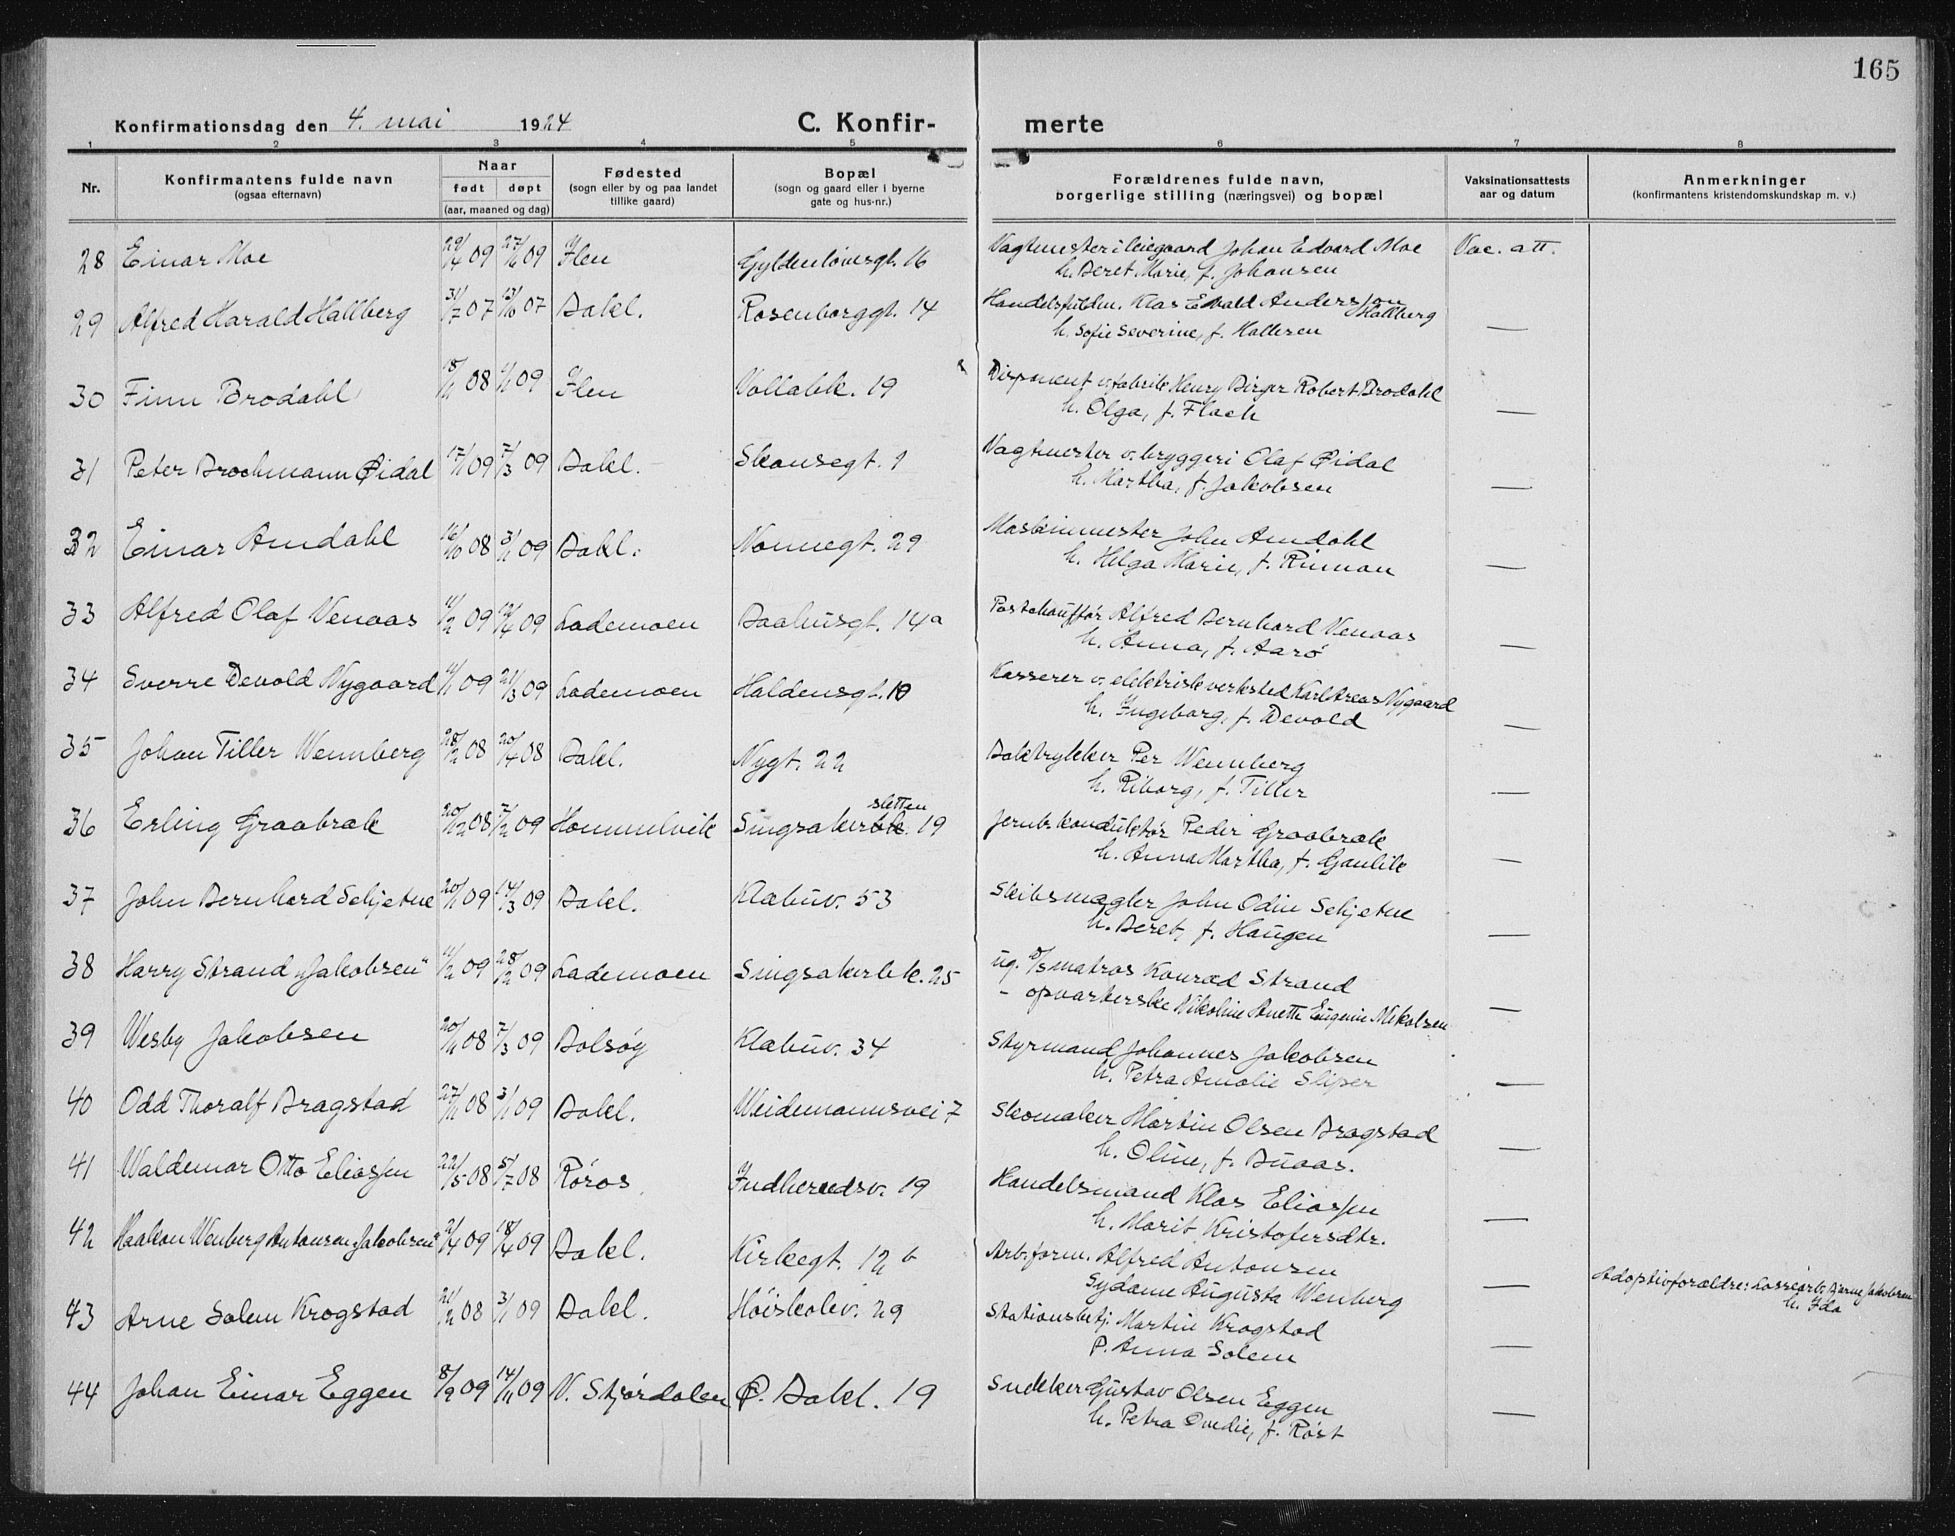 165
Konfirmationsdag den 4. mai 1924 C. Konfirmerte
1 2 3 4 5 6 7 8
Nr. Konfirmantens fulde navn (ogsaa efternavn) Naar født døpt (aar, maaned og dag) Fødested (sogn eller by og paa landet tillike gaard) Bopæl (sogn og gaard eller i byerne gate og hus-nr.) Forældrenes fulde navn, borgerlige stilling (næringsvei) og bopæl Vaksinationsattests aar og datum Anmerkninger (konfirmantens kristendomskundskap m. v.)
28 Einar Moe 29/4 09 27/6 09 Ilen Gyldenløvesgt. 16 Vagtmester i leiegaard Johan Edvard Moe Vac. att.
h. Beret Marie, f. Johansen
29 Alfred Harald Hallberg 31/7 07 13/10 07 Bakl. Rosenborggt. 14 Handelsfuldm. Klas Edvald Andersson Hallberg —
h. Sofie Severine, f. Hallesen
30 Finn Brodahl 18/11 08 1/1 09 Ilen Vollabk. 19 Disponent v. fabrik Henry Birger Robert Brodahl
h. Olga, f. Flach —
31 Peter Brochmann Øidal 17/1 09 7/3 09 Bakl. Skansegt. 1 Vagtmester v. bryggeri Olaf Øidal
h. Martha, f. Jakobsen —
32 Einar Amdahl 16/10 08 3/1 09 Bakl. Nonnegt. 29 Maskinmester John Amdahl
h. Helga Marie, f. Rinnan —
33 Alfred Olaf Venaas 11/2 09 12/4 09 Lademoen Baahusgt. 14a Postchauffør Alfred Bernhard Venaas
h. Anna, f. Aarø —
34 Sverre Devold Nygaard 11/1 09 21/3 09 Lademoen Haldensgt. 10 Kasserer v. elektrisk verksted Karl Areas Nygaard
h. Ingeborg, f. Devold —
35 Johan Tiller Wennberg 28/2 08 20/4 08 Bakl. Nygt. 22 Boktrykker Per Wennberg
h. Riborg, f. Tiller —
36 Erling Graabrak 20/12 08 7/2 09 Hommelvik Singsakerbk. sletten 19 Jernb.konduktør Peder Graabrak
h. Anna Martha, f. Gaulik —
37 John Bernhard Schjetne 20/1 09 14/3 09 Bakl. Klæbuv. 53 Skibsmægler John Odin Schjetne
h. Beret, f. Haugen —
38 Harry Strand „Jakobsen" 11/2 09 28/2 09 Lademoen Singsakerbk. 25 ug. d/s matros Konrad Strand
- opvarterske Nikoline Anette Eugenie Nikolsen —
39 Wesby Jakobsen 20/11 08 7/3 09 Bolsøy Klæbuv. 34 Styrmand Johannes Jakobsen
h. Petra Amalie Sliper —
40 Odd Thoralf Bragstad 27/11 08 3/1 09 Bakl. Weidemannsvei 7 Skomaker Martin Olsen Bragstad
h. Oline, f. Buaas. —
41 Waldemar Otto Eliassen 22/5 08 5/7 08 Røros Indherredsv. 19 Handelsmand Klas Eliassen
h. Marit Kristofersdtr. —
42 Haakon Wenberg Antonsen „Jakobsen" 2/4 09 18/4 09 Bakl. Kirkegt. 12b Arb.form. Alfred Antonsen
Sydame Augusta Wenberg — Adoptivforældre: Lossearb. Bjarne Jakobsen h. Ida
43 Arne Solem Krogstad 21/2 08 3/1 09 Bakl. Høiskolev. 29 Stationsbetj. Martin Krogstad
P. Anna Solem —
44 Johan Einar Eggen 8/9 09 14/11 09 N. Stjørdalen Ø. Bakl. 19 Snekker Gustav Olsen Eggen
h. Petra Ovedie, f. Røst —